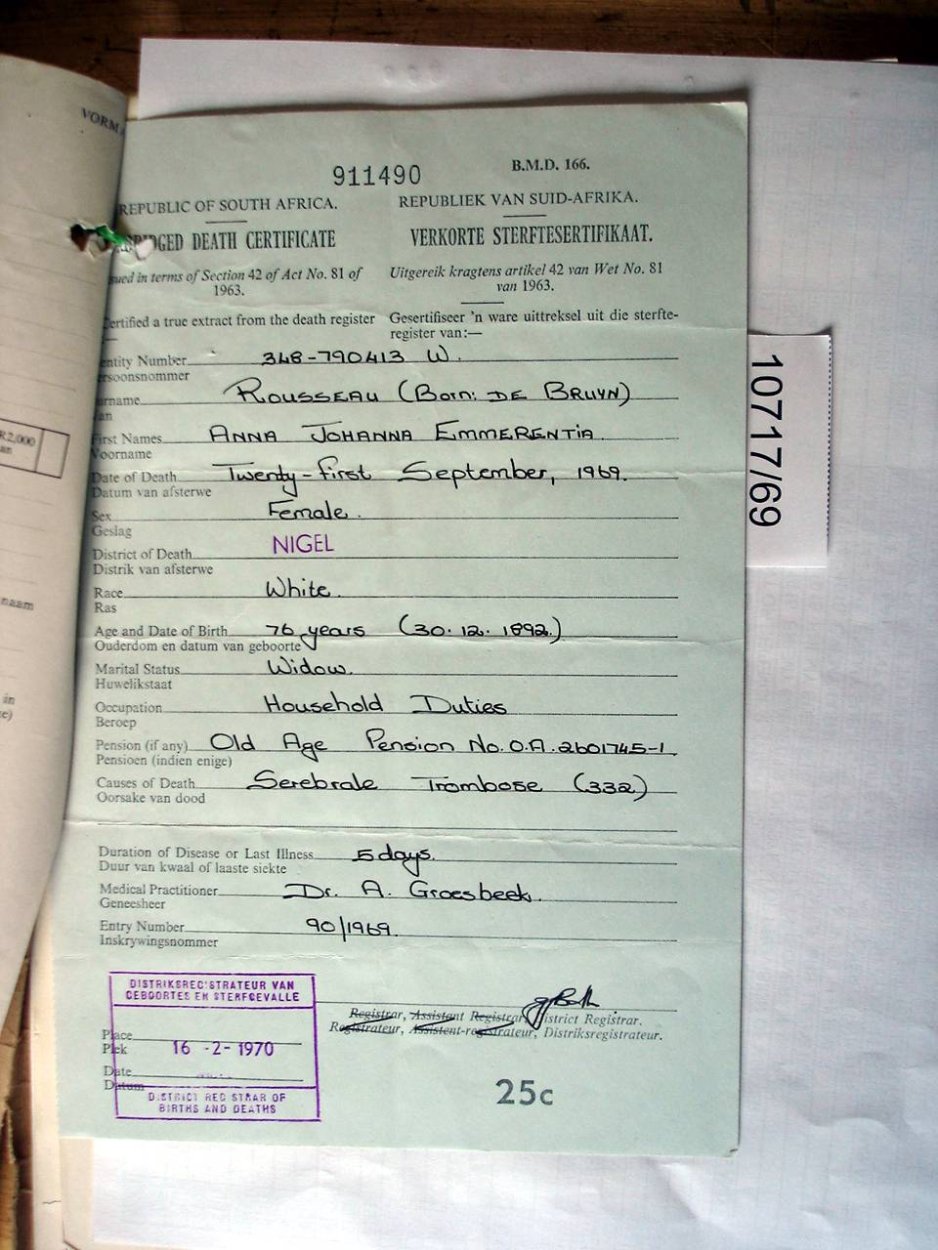 VORM
911490
B.M.D. 166.
REPUBLIC OF SOUTH AFRICA.
REPUBLIEK VAN SUID-AFRIKA.
DEATH CERTIFICATE
VERKORTE STERFTESERTIFIKAAT.
sued in terms of Section 42 of Act No. 81 of
1963.
Uitgereik kragtens artikel 42 van Wet No. 81
van 1963.
Certified a true extract from the death register
Gesertifiseer 'n ware uittreksel uit die sterfte-
register van:—
entity Number 348-790413 W.
ersoonsnommer
urname ROUSSEAU (Born: DE BRUYN)
an
First Names ANNA JOHANNA EMMERENTIA
Voorname
Date of Death Twenty-first September, 1969.
Datum van afsterwe
Sex Female.
Geslag
District of Death NIGEL
Distrik van afsterwe
Race White.
Ras
Age and Date of Birth 76 years (30.12.1892.)
Ouderdom en datum van geboorte
Marital Status Widow.
Huwelikstaat
Occupation Household Duties
Beroep
Pension (if any) Old Age Pension No. O.A. 2601745-1
Pensioen (indien enige)
Causes of Death Serebrale Trombose (332)
Oorsake van dood
Duration of Disease or Last Illness 5 days.
Duur van kwaal of laaste siekte
Medical Practitioner Dr. A. Groesbeek.
Geneesheer
Entry Number 90/1969.
Inskrywingsnommer
DISTRIKSREGISTRATEUR VAN
GEBOORTES EN STERFGEVALLE
Place
Plek 16 -2- 1970
Date
Datum
DISTRICT REGISTRAR OF
BIRTHS AND DEATHS
Registrar, Assistant Registrar, District Registrar.
Registrateur, Assistent-registrateur, Distriksregistrateur.
25c
10717/69
R2,000
an
naam
in
e)